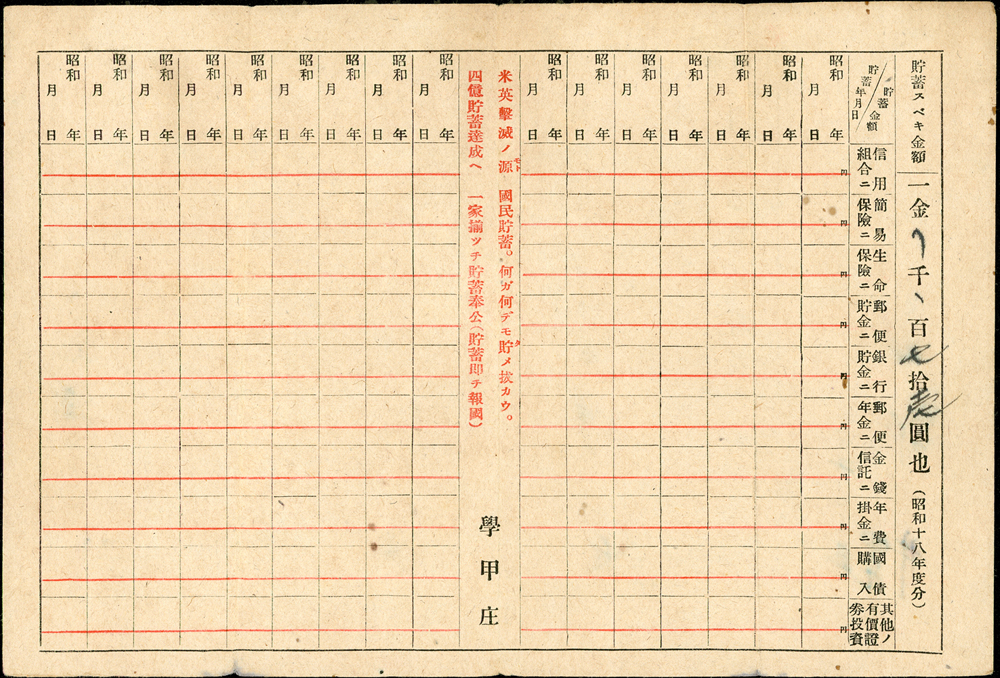 貯蓄スベキ金額
一金 千ヽ百七拾圓也(昭和十八年度分)
貯蓄金額
貯蓄年月日
信用組合ニ
簡易保險ニ
生命保險ニ
郵便貯金ニ
銀行貯金ニ
郵便年金ニ
金錢信託ニ
年費掛金ニ
國債購入
其他ノ有價證券投資
昭和 年 月 日
円
円
円
円
円
円
円
円
円
円
昭和 年 月 日
昭和 年 月 日
昭和 年 月 日
昭和 年 月 日
昭和 年 月 日
昭和 年 月 日
米英擊滅ノ源モト 國民貯蓄。何ガ何デモ貯タメ拔カウ。
四億貯蓄達成ヘ 一家揃ツテ貯蓄奉公(貯蓄卽チ報國)
學甲庄
昭和 年 月 日
昭和 年 月 日
昭和 年 月 日
昭和 年 月 日
昭和 年 月 日
昭和 年 月 日
昭和 年 月 日
昭和 年 月 日
昭和 年 月 日